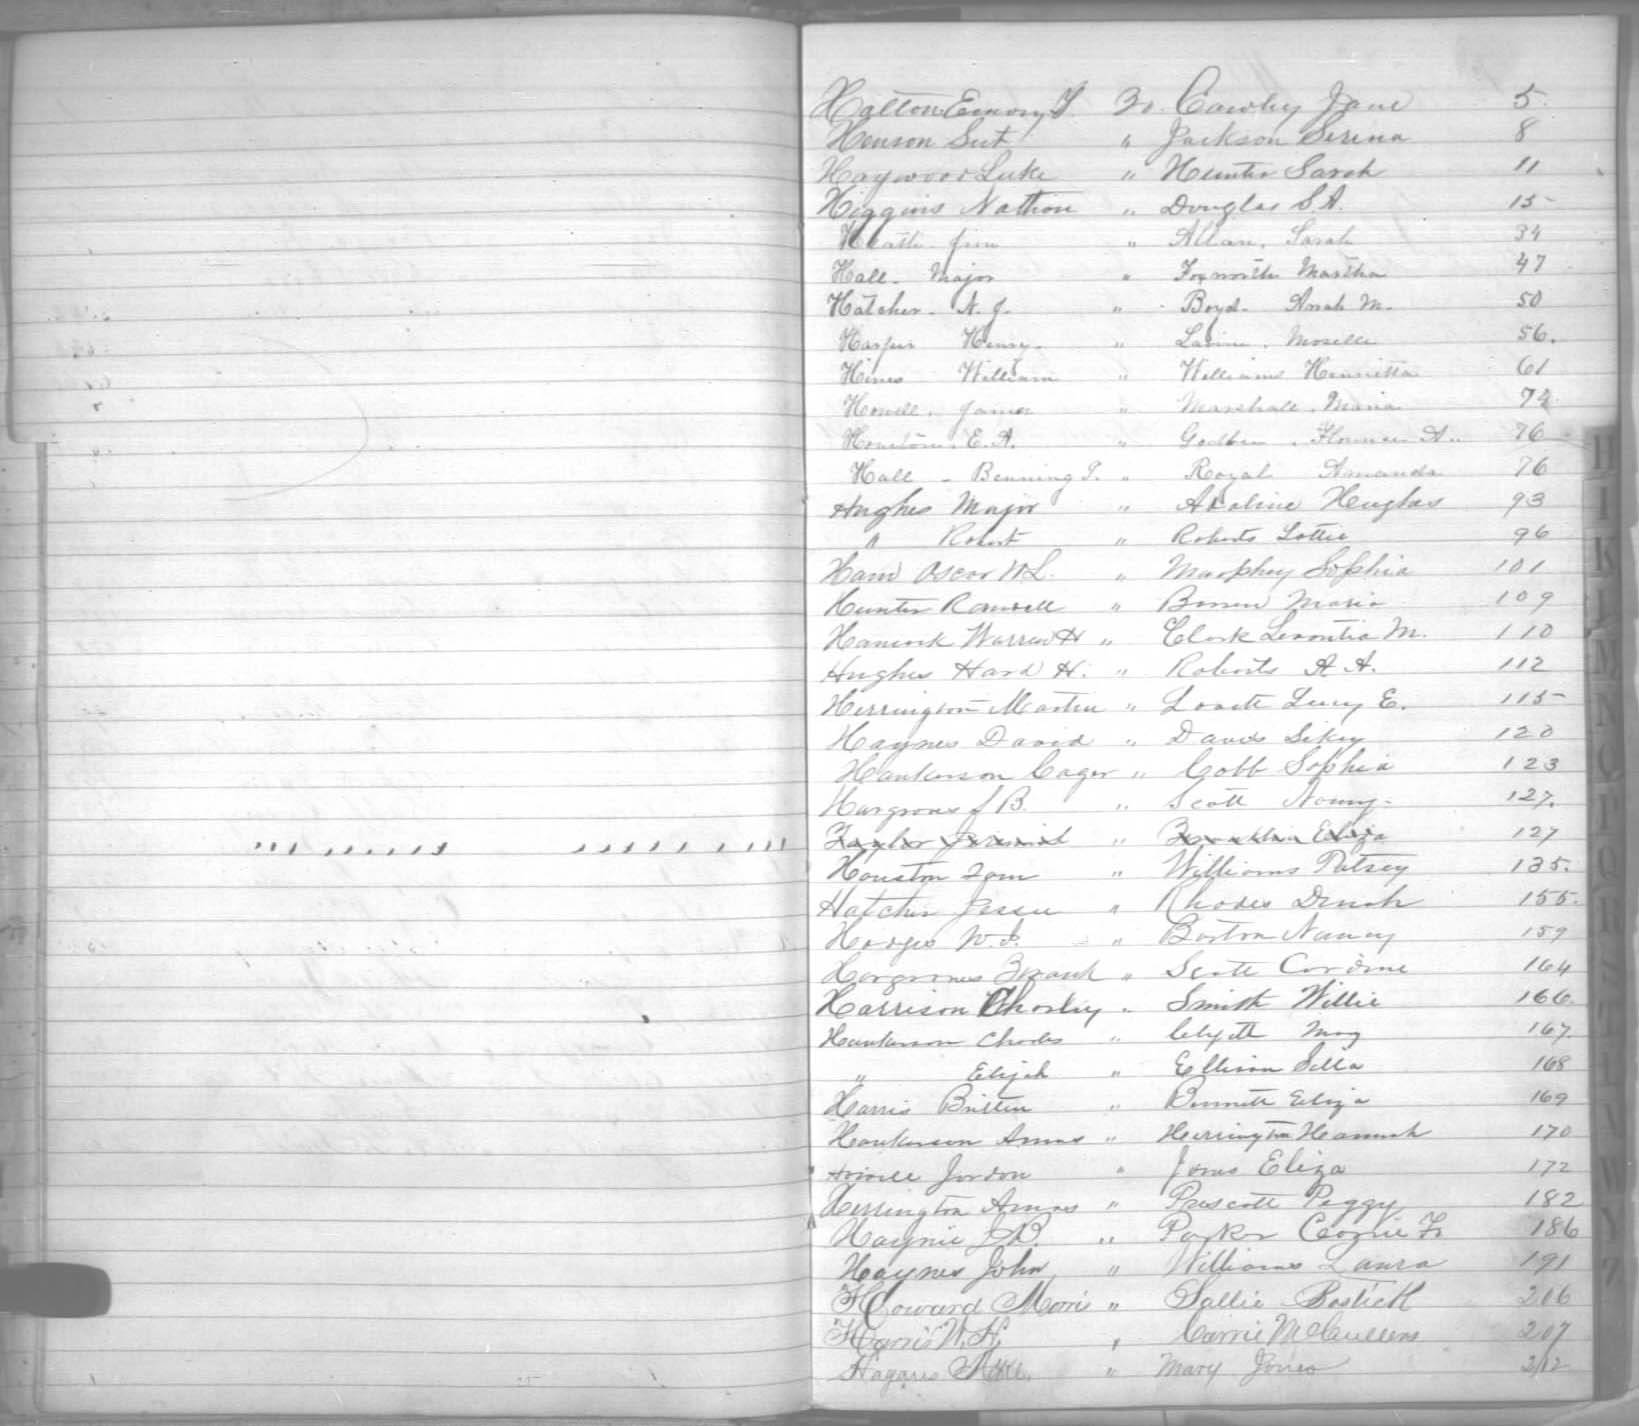 Hatton Emory T. To Cawley Jane 5
Henson Seet " Jackson Serena 8
Haywood Luke " Hunter Sarah 11
Higgins Nathion " Douglas S A. 15
Heath Jim " Allan, Sarah 34
Hall. Major " Foxworth Martha 47
Hatcher. N. J. " Boyd. Anah M. 50
Harper Henry. " Moselle 56.
Hines William " Williams Henrietta 61
Howell. James " Marshall. Maria 74
Houston. E. A. " Godbee. Florence A. 76
Hall - Benning T. " Royal Amanda 76
Hughes Major " Adaline Hughes 93
" Robert " Roberts Lottie 96
Ham Oscar W L. " Murphey Sophia 101
Hunter " Maria 109
Hancock Warren H " Clark Leontia M. 110
Hughes Hard H. " Roberts A A. 112
Herrington Martin " Lovett Lucy E. 115
Haynes David " Davis Sikey 120
Hankerson Cager " Cobb Sophia 123
Hargroves J B. " Scott Nancy. 127.
Taylor " Franklin Eliza 127
Houston Tom " Williams Patsey 135.
Hatcher Jessee " Rhodes Dinah 155.
Hodges W. J. " Boston Nancy 159
Hargroves Branch " Scott 164
Harrison Charley " Smith Willie 166.
Hankerson Charles " May 167.
" Elijah " Ellison Silla 168
Harris Britten " Bennett Eliza 169
Hankerson Amos " Herrington Hannah 170
Howell Jordon " Jones Eliza 172
Herrington Amos " Prescott Peggy 182
Haynie J B. " Parker Coozie F. 186
Haynes John " Williams Laura 191
Howard Morris " Sallie Bostick 206
Harris W. H. " Carrie McCullers 207
Hagans Mike. " Mary Jones 212
H
I
K
L
M
N
O
P
Q
R
S
T
U
V
W
Y
Z